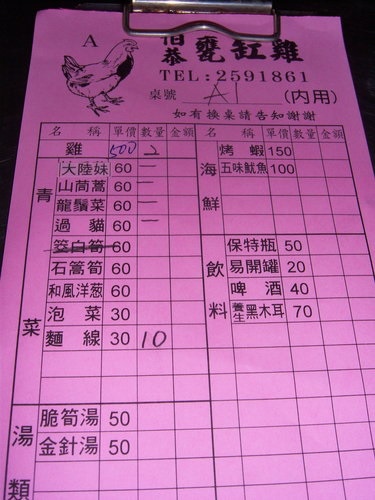 A
伯恭甕缸雞
TEL:2591861
桌號 A1 (內用)
如有換桌請告知謝謝
名 稱 單價 數量 金額 名 稱 單價 數量 金額
雞 500 2 烤 蝦 150
大陸妹 60 一 五味魷魚 100
山茼蒿 60 一
龍鬚菜 60 一
過 貓 60 一
茭白筍 60 保特瓶 50
石篙筍 60 易開罐 20
和風洋葱 60 啤 酒 40
泡 菜 30 養生黑木耳 70
麵 線 30 10
青菜
海鮮
飲料
脆筍湯 50
金針湯 50
湯類